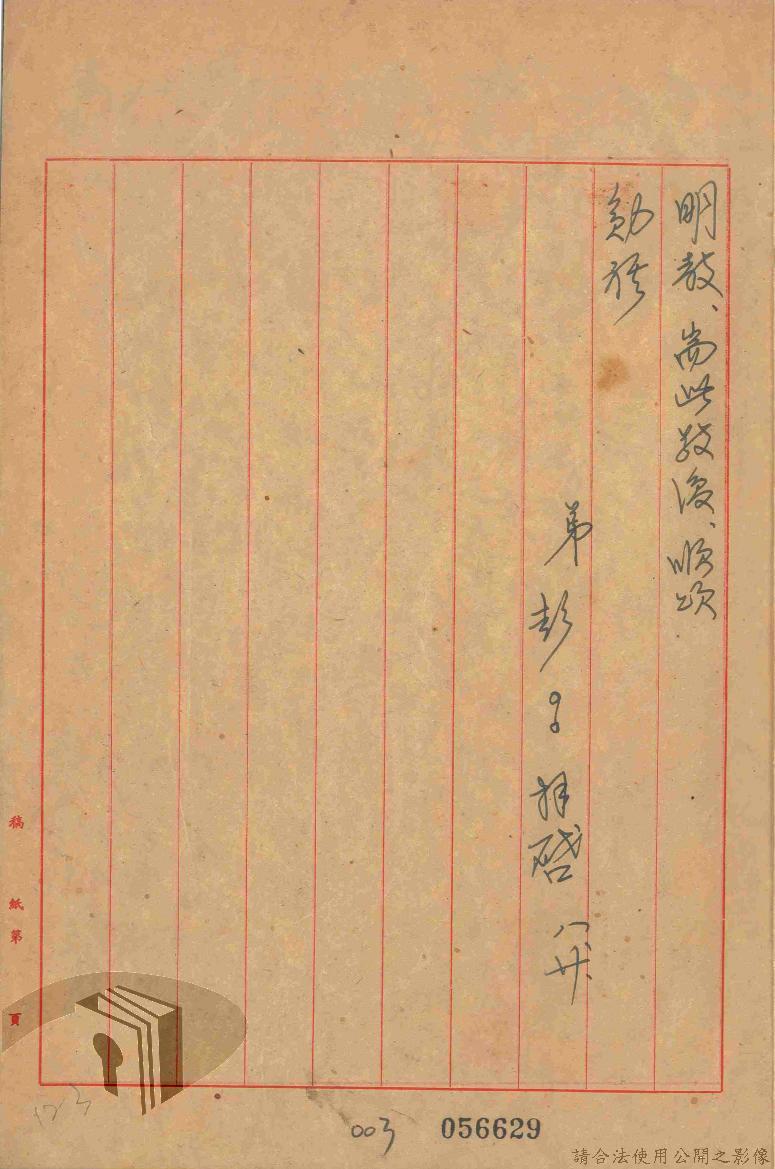 明教、耑此敬復、順頌
勛祺
弟彭○拜啓 八廿、
稿紙第 頁
003
056629
請合法使用公開之影像